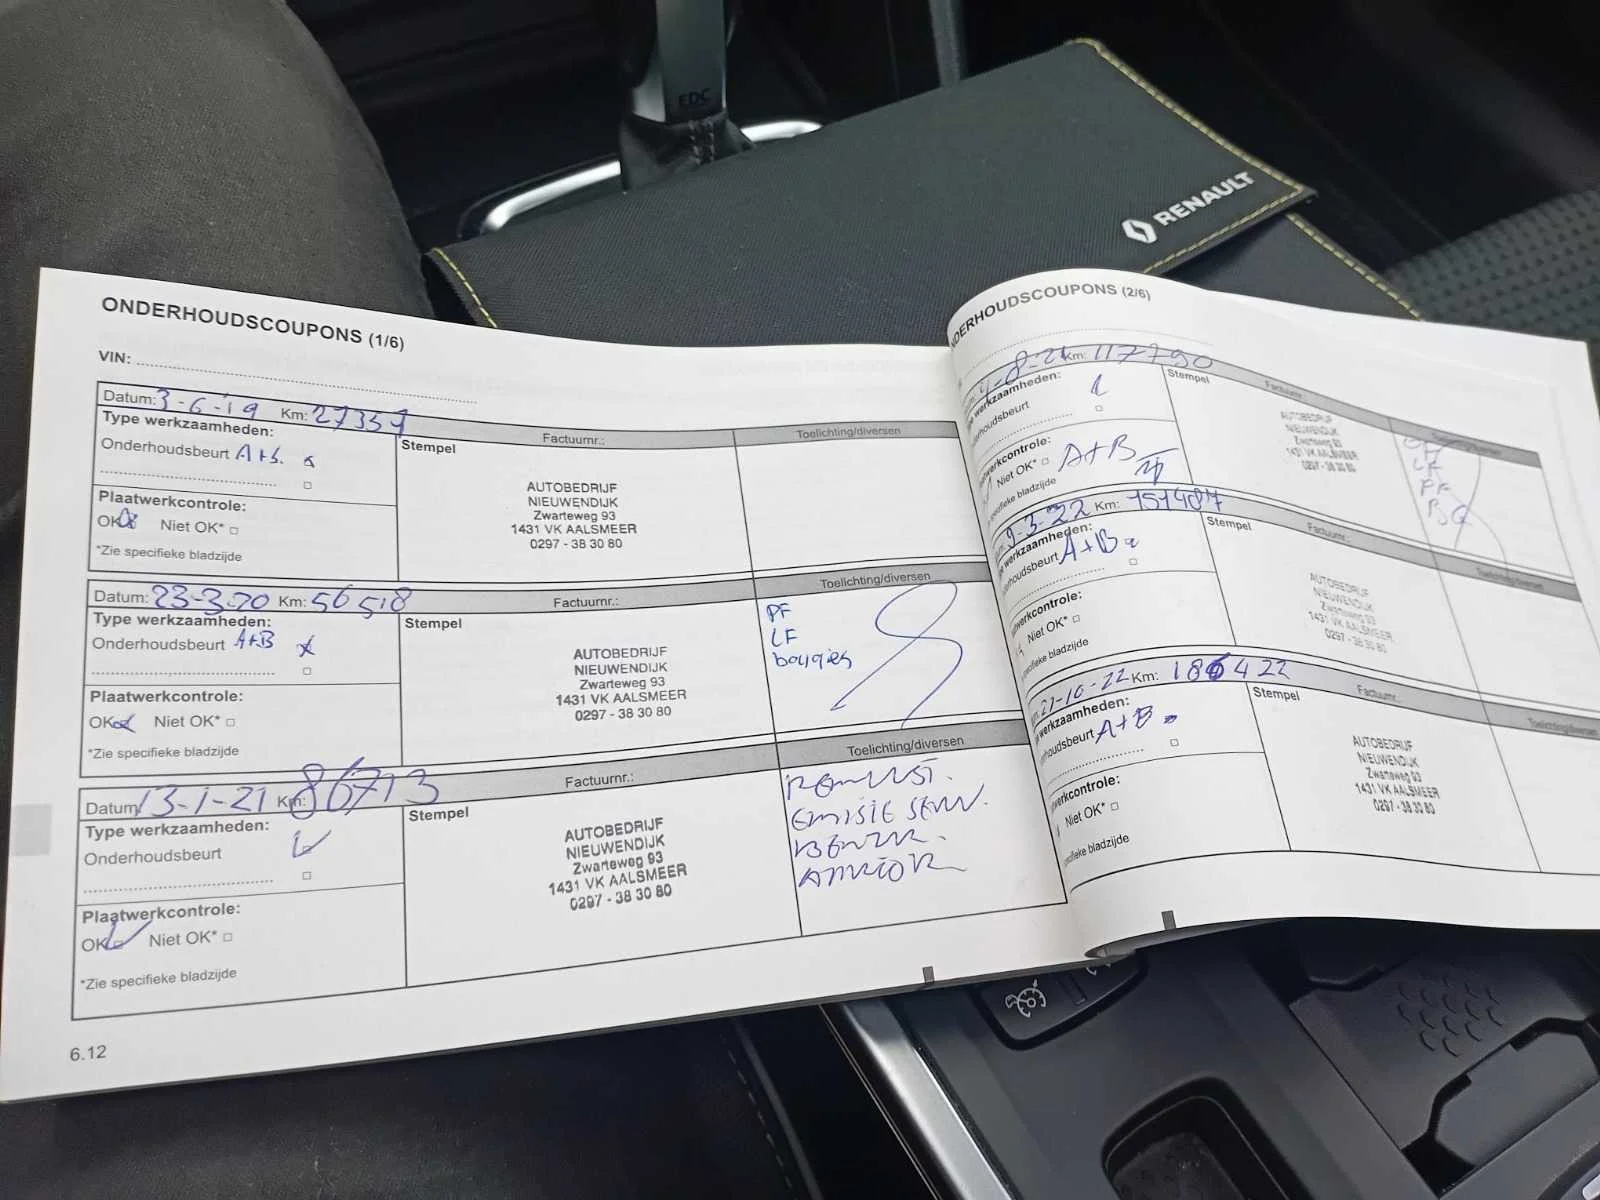 EDC
RENAULT
ONDERHOUDSCOUPONS (1/6)
VIN:
Datum: 3-6-19 Km: 27357
Type werkzaamheden:
Onderhoudsbeurt A+B.
Plaatwerkcontrole:
OK Niet OK*
*Zie specifieke bladzijde
Stempel
Factuurnr.:
Toelichting/diversen
AUTOBEDRIJF
NIEUWENDIJK
Zwarteweg 93
1431 VK AALSMEER
0297 - 38 30 80
Datum: 23-3-20 Km: 56518
Type werkzaamheden:
Onderhoudsbeurt A+B
Plaatwerkcontrole:
OK Niet OK*
*Zie specifieke bladzijde
Stempel
Factuurnr.:
Toelichting/diversen
AUTOBEDRIJF
NIEUWENDIJK
Zwarteweg 93
1431 VK AALSMEER
0297 - 38 30 80
PF
LF
bougies
Datum 13-1-21 Km: 86713
Type werkzaamheden:
Onderhoudsbeurt
Plaatwerkcontrole:
OK Niet OK*
*Zie specifieke bladzijde
Stempel
Factuurnr.:
Toelichting/diversen
AUTOBEDRIJF
NIEUWENDIJK
Zwarteweg 93
1431 VK AALSMEER
0297 - 38 30 80
REMVLST.
EMISIE SERV.
6.12
NDERHOUDSCOUPONS (2/6)
4-8-21 Km: 117790
ype werkzaamheden:
derhoudsbeurt
werkcontrole:
Niet OK* A+B
specifieke bladzijde
Stempel
Factuurnr.:
AUTOBEDRIJF
NIEUWENDIJK
Zwarteweg 93
1431 VK AALSMEER
0297 - 38 30 80
9-3-22 Km: 151487
e werkzaamheden:
houdsbeurt A+B
werkcontrole:
Niet OK*
specifieke bladzijde
Stempel
Factuurnr.:
AUTOBEDRIJF
NIEUWENDIJK
Zwarteweg 93
1431 VK AALSMEER
0297 - 38 30 80
27-10-22 Km: 186422
werkzaamheden:
houdsbeurt A+B
werkcontrole:
Niet OK*
ecifieke bladzijde
Stempel
Factuurnr.:
Toelichting/diversen
AUTOBEDRIJF
NIEUWENDIJK
Zwarteweg 93
1431 VK AALSMEER
0297 - 38 30 80